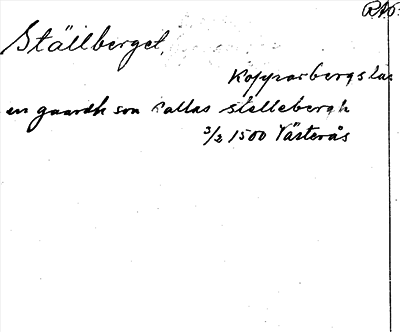 RAP.
Ställberget,
Kopparbergs län
en gaardh son kallas stellebergh
3/2 1500 Västerås